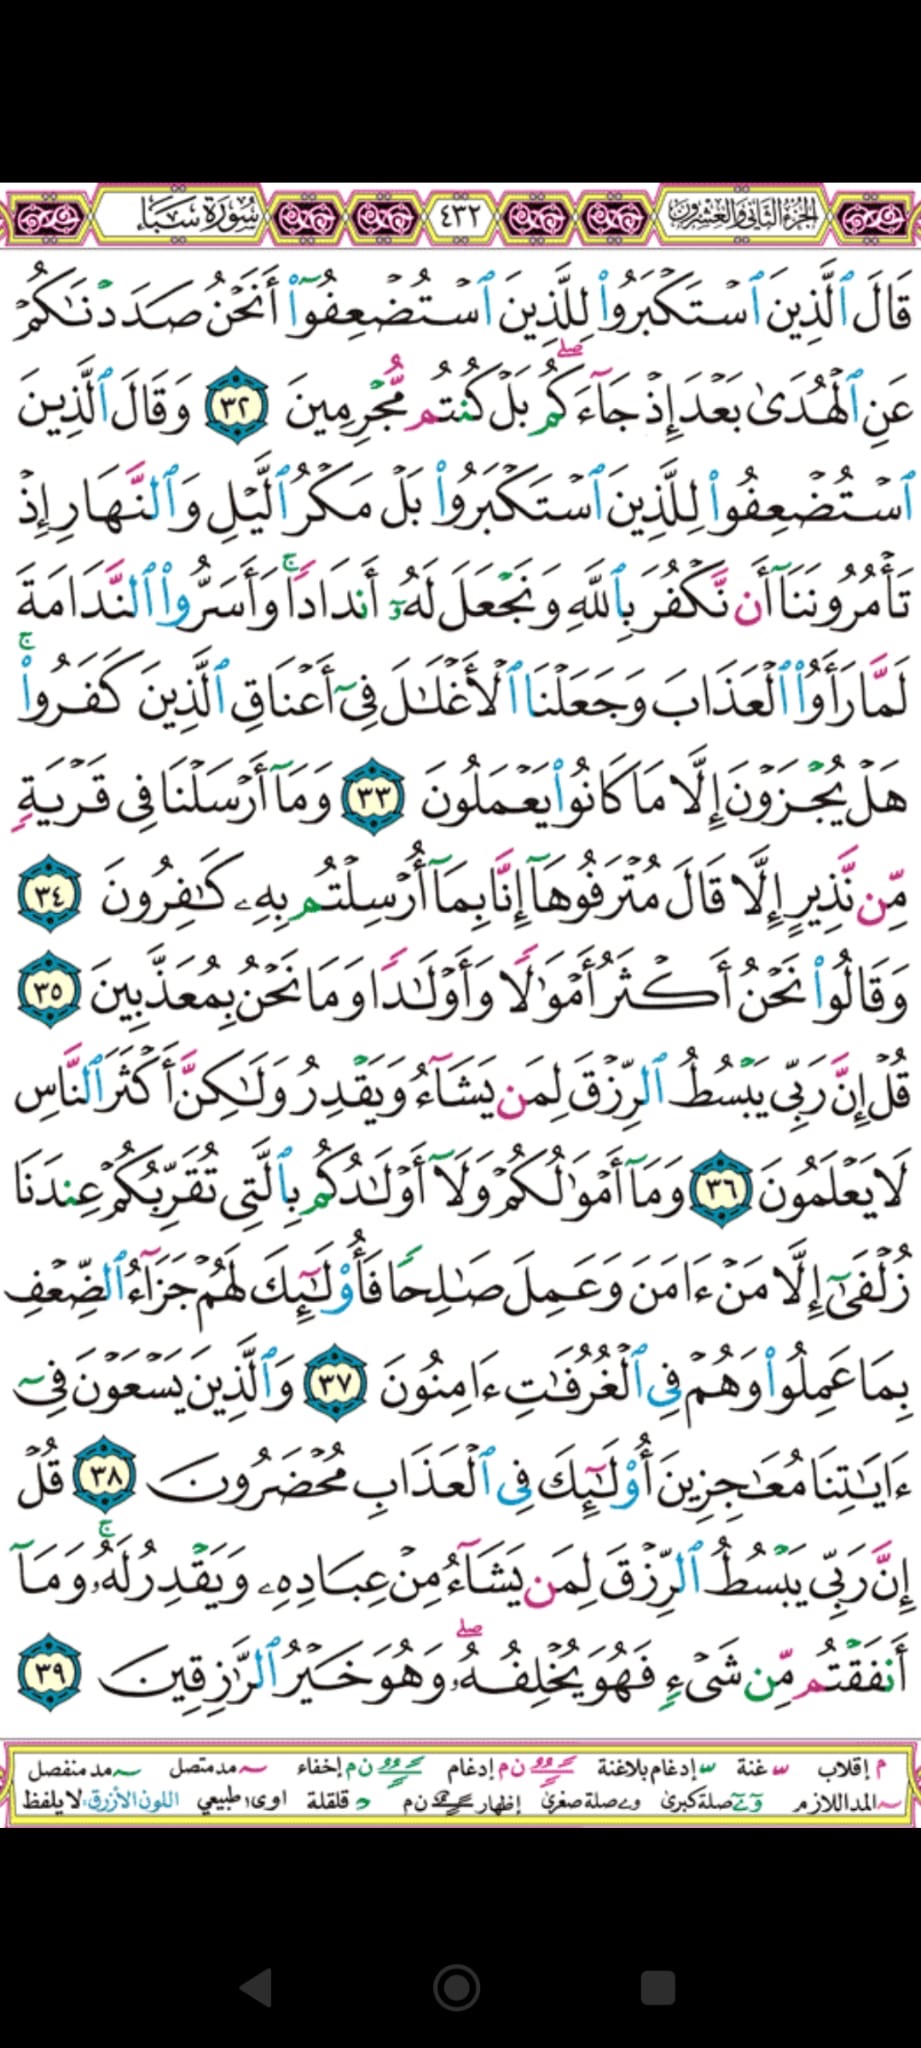 الجزء الثاني والعشرون
٤٣٢
سورة سبأ
قَالَ ٱلَّذِينَ ٱسۡتَكۡبَرُواْ لِلَّذِينَ ٱسۡتُضۡعِفُوٓاْ أَنَحۡنُ صَدَدۡنَٰكُمۡ
عَنِ ٱلۡهُدَىٰ بَعۡدَ إِذۡ جَآءَكُمۖ بَلۡ كُنتُم مُّجۡرِمِينَ ٣٢ وَقَالَ ٱلَّذِينَ
ٱسۡتُضۡعِفُواْ لِلَّذِينَ ٱسۡتَكۡبَرُواْ بَلۡ مَكۡرُ ٱلَّيۡلِ وَٱلنَّهَارِ إِذۡ
تَأۡمُرُونَنَآ أَن نَّكۡفُرَ بِٱللَّهِ وَنَجۡعَلَ لَهُۥٓ أَندَادٗاۚ وَأَسَرُّواْ ٱلنَّدَامَةَ
لَمَّا رَأَوُاْ ٱلۡعَذَابَ وَجَعَلۡنَا ٱلۡأَغۡلَٰلَ فِيٓ أَعۡنَاقِ ٱلَّذِينَ كَفَرُواْۚ
هَلۡ يُجۡزَوۡنَ إِلَّا مَا كَانُواْ يَعۡمَلُونَ ٣٣ وَمَآ أَرۡسَلۡنَا فِي قَرۡيَةٖ
مِّن نَّذِيرٍ إِلَّا قَالَ مُتۡرَفُوهَآ إِنَّا بِمَآ أُرۡسِلۡتُم بِهِۦ كَٰفِرُونَ ٣٤
وَقَالُواْ نَحۡنُ أَكۡثَرُ أَمۡوَٰلٗا وَأَوۡلَٰدٗا وَمَا نَحۡنُ بِمُعَذَّبِينَ ٣٥
قُلۡ إِنَّ رَبِّي يَبۡسُطُ ٱلرِّزۡقَ لِمَن يَشَآءُ وَيَقۡدِرُ وَلَٰكِنَّ أَكۡثَرَ ٱلنَّاسِ
لَا يَعۡلَمُونَ ٣٦ وَمَآ أَمۡوَٰلُكُمۡ وَلَآ أَوۡلَٰدُكُم بِٱلَّتِي تُقَرِّبُكُمۡ عِندَنَا
زُلۡفَىٰٓ إِلَّا مَنۡ ءَامَنَ وَعَمِلَ صَٰلِحٗا فَأُوْلَٰٓئِكَ لَهُمۡ جَزَآءُ ٱلضِّعۡفِ
بِمَا عَمِلُواْ وَهُمۡ فِي ٱلۡغُرُفَٰتِ ءَامِنُونَ ٣٧ وَٱلَّذِينَ يَسۡعَوۡنَ فِيٓ
ءَايَٰتِنَا مُعَٰجِزِينَ أُوْلَٰٓئِكَ فِي ٱلۡعَذَابِ مُحۡضَرُونَ ٣٨ قُلۡ
إِنَّ رَبِّي يَبۡسُطُ ٱلرِّزۡقَ لِمَن يَشَآءُ مِنۡ عِبَادِهِۦ وَيَقۡدِرُ لَهُۥۚ وَمَآ
أَنفَقۡتُم مِّن شَيۡءٖ فَهُوَ يُخۡلِفُهُۥۖ وَهُوَ خَيۡرُ ٱلرَّٰزِقِينَ ٣٩
م إقلاب غنة إدغام بلاغنة ن م إدغام ن م إخفاء مد متصل مد منفصل
المد اللازم صلة كبرى صلة صغرى إظهار ن م قلقلة اوى طبيعي اللون الأزرق: لا يلفظ